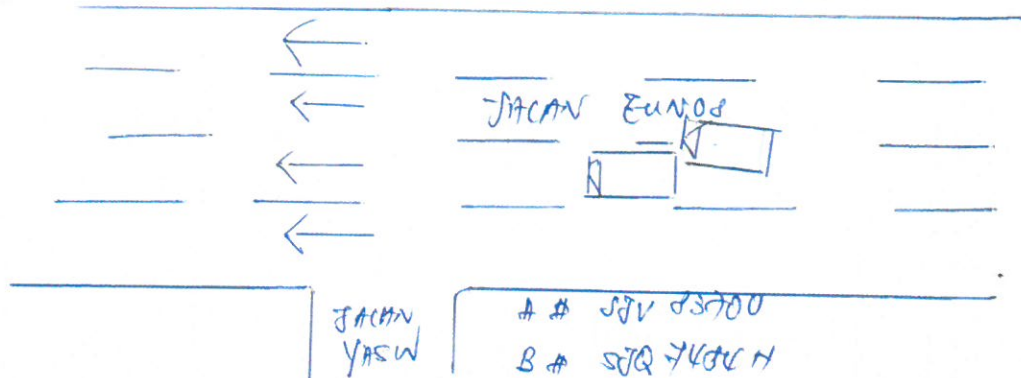 JALAN EUNOS
JALAN
YASIN
A # SJV 8370U
B # SJQ 7484H